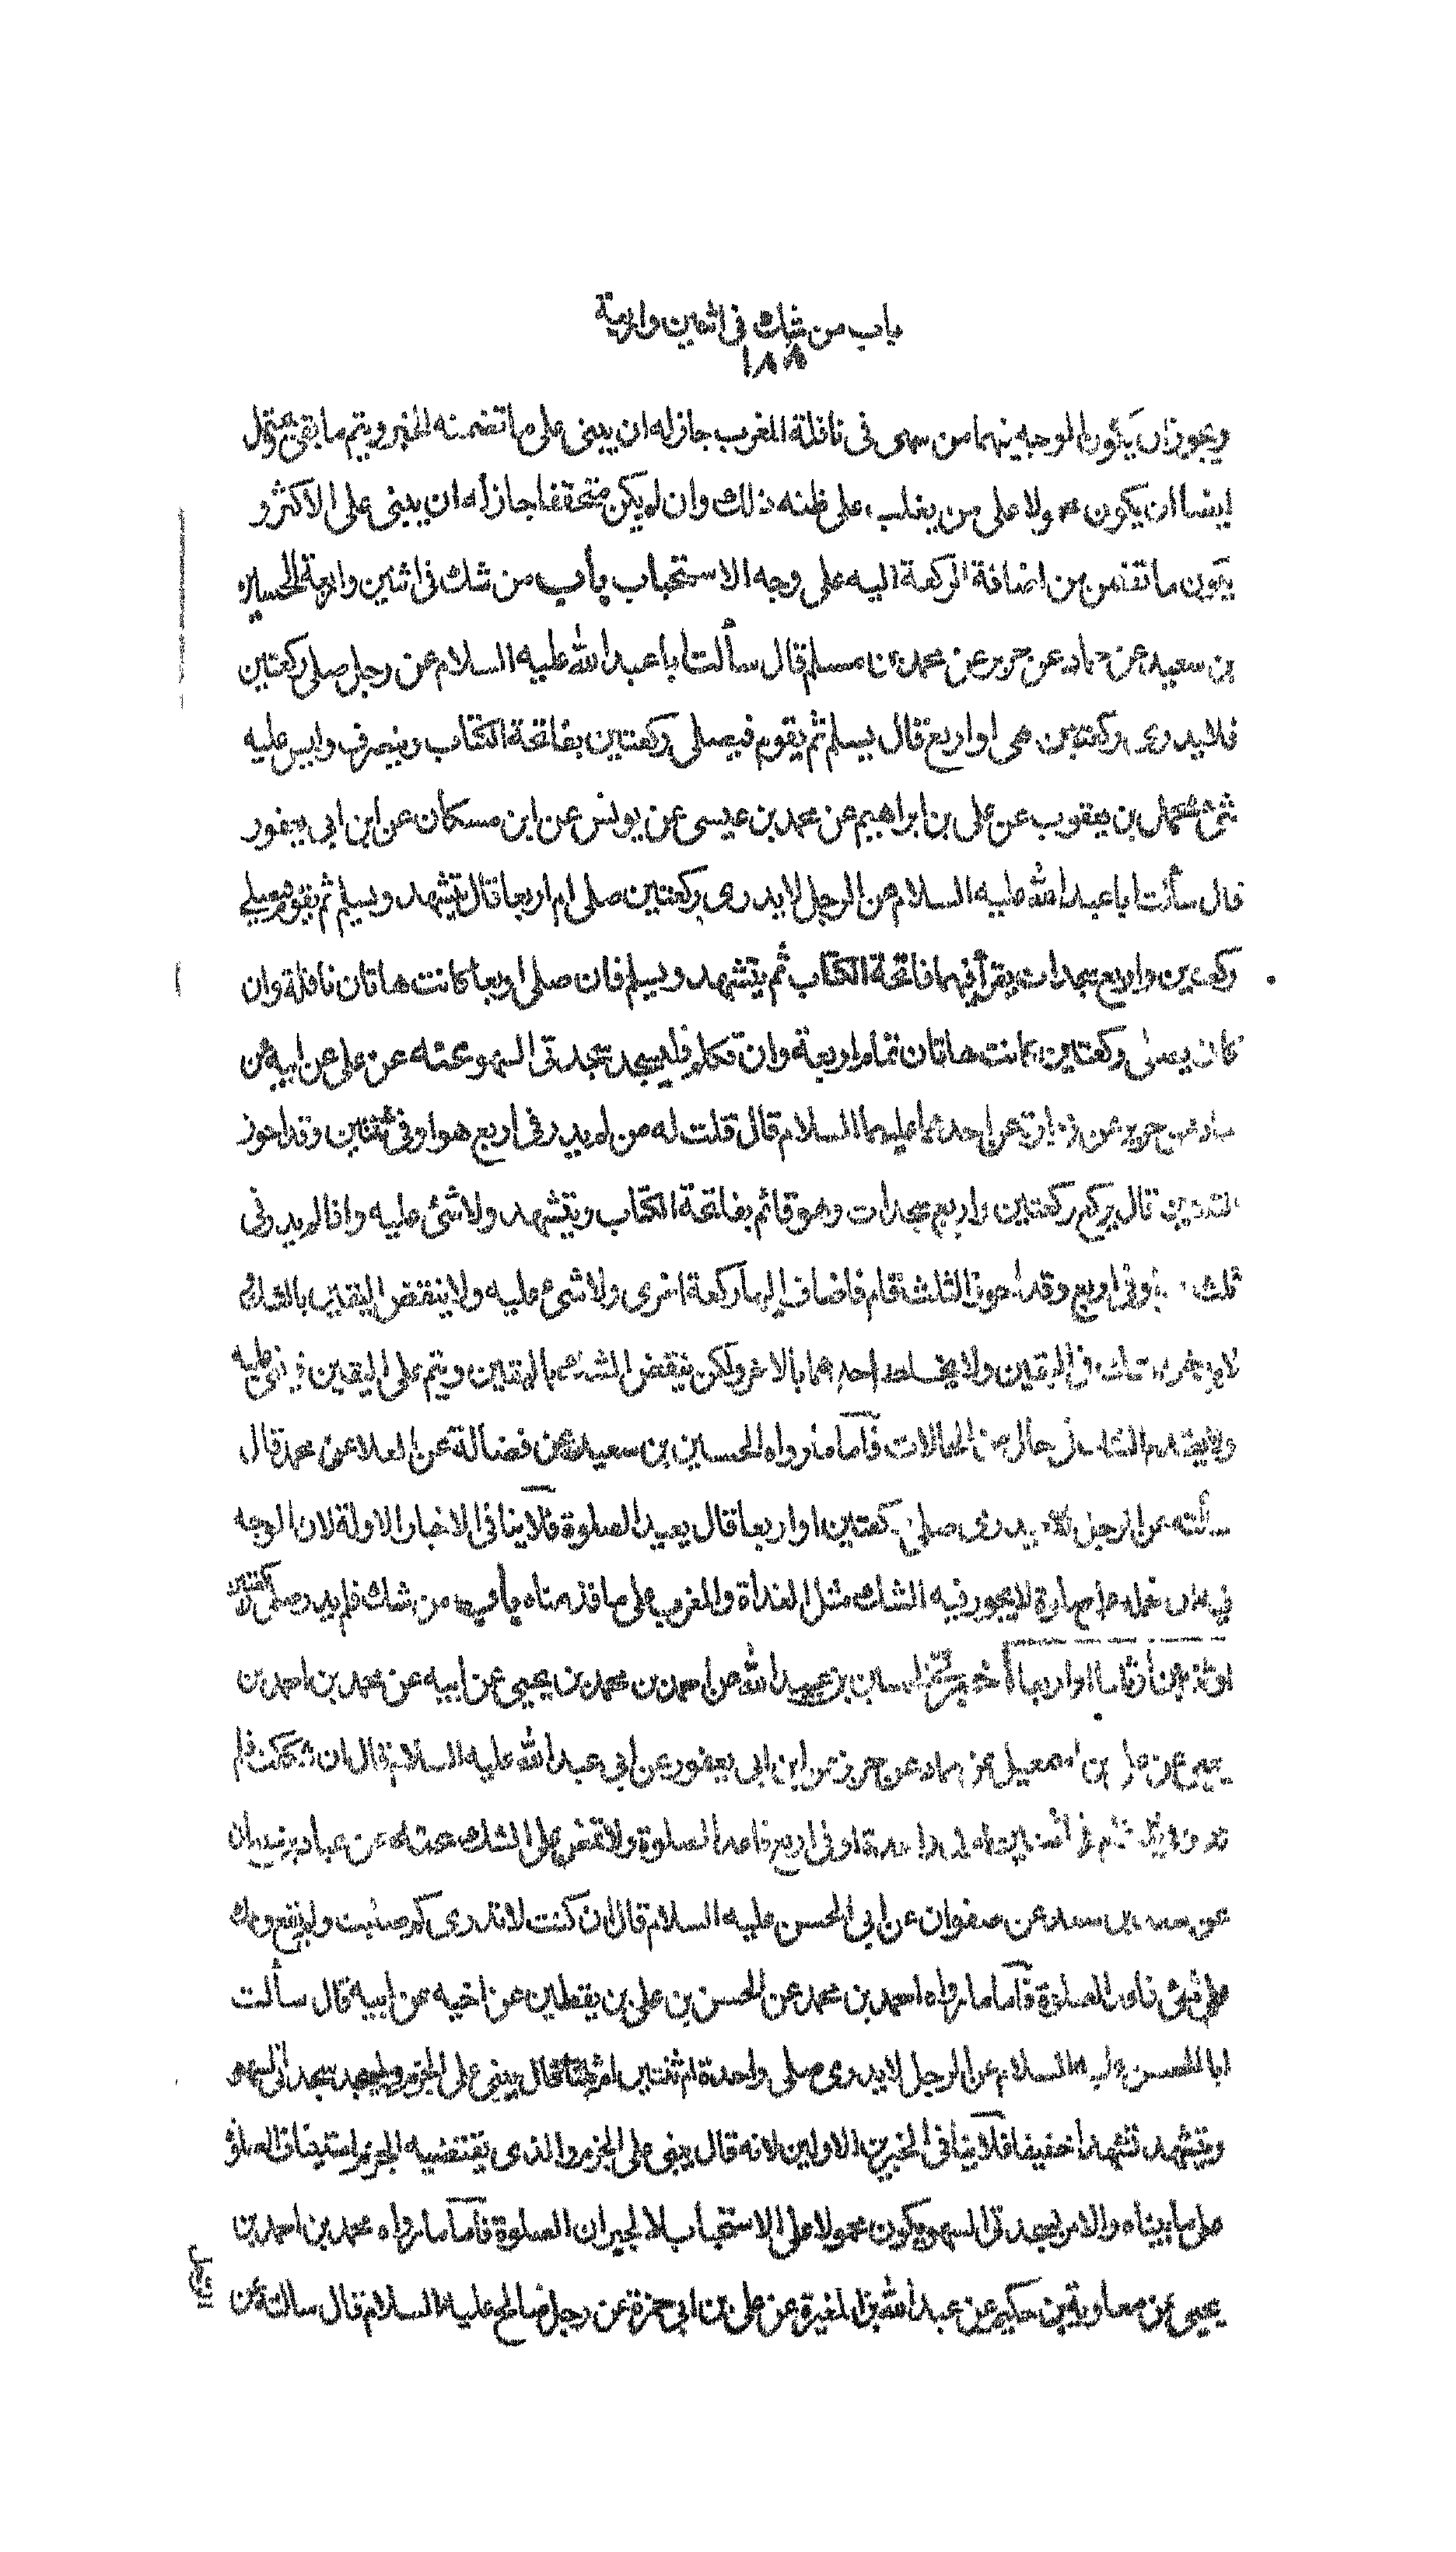 باب من شك في اثنين واربعة
١٨٨
ويجوز ان يكون الوجه فيهما من سهى في نافلة المغرب جاز له ان يبنى على ما تضمنه الخبر ويتم ما بقى ويحتمل
ايضا ان يكون محمولا على من يغلب على ظنه ذلك وان لم يكن متحققا جاز له ان يبنى على الاكثر و
يكون ما تضمن من اضافة الركعة اليه على وجه الاستحباب باب من شك في اثنين واربعة الحسين
بن سعيد عن حماد عن حريز عن محمد بن مسلم قال سألت ابا عبد الله عليه السلام عن رجل صلى ركعتين
فلا يدرى ركعتين هى او اربع قال يسلم ثم يقوم فيصلى ركعتين بفاتحة الكتاب وينصرف وليس عليه
شئ محمد بن يعقوب عن على بن ابراهيم عن محمد بن عيسى عن يونس عن ابن مسكان عن ابن ابى يعفور
قال سألت ابا عبد الله عليه السلام عن الرجل لا يدرى ركعتين صلى ام اربعا قال يتشهد ويسلم ثم يقوم فيصلى
ركعتين واربع سجدات يقرأ فيهما فاتحة الكتاب ثم يتشهد ويسلم فان صلى اربعا كانت هاتان نافلة وان
كان يصلى ركعتين كانت هاتان تمام اربعة وان تكلم فليسجد سجدتى السهو عنه عن على عن ابيه عن
حماد عن حريز عن زرارة عن احدهما عليهما السلام قال قلت له من لم يدر في اربع هو او في ثنتين وقد احرز
الثنتين قال يركع ركعتين واربع سجدات وهو قائم بفاتحة الكتاب ويتشهد ولا شئ عليه واذا لم يدر في
ثلث هو او في اربع وقد احرز الثلث قام فاضاف اليها ركعة اخرى ولا شئ عليه ولا ينقض اليقين بالشك
ولا يدخل الشك في اليقين ولا يخلط احدهما بالاخر ولكن ينقض الشك باليقين ويتم على اليقين فيبنى عليه
ولا يعتد بالشك في حال من الحالات فاما ما رواه الحسين بن سعيد عن فضالة عن العلا عن محمد قال
سألته عن الرجل لا يدرى صلى ركعتين او اربعا قال يعيد الصلوة فلا ينافى الاخبار الاولة لان الوجه
في هذا ان نحمله على صلوة لا يجوز فيه الشك مثل الغداة والمغرب على ما قدمناه باب من شك فلم يدر صلى ركعتين
او ثلاثا او اربعا اخبرنى الحسين بن عبيد الله عن احمد بن محمد بن يحيى عن ابيه عن محمد بن احمد بن
يحيى عن على بن اسمعيل عن حماد عن حريز عن ابن ابى يعفور عن ابى عبد الله عليه السلام قال ان شككت فلم
تدر في ثلث ام في اثنين ام في واحدة او في اربع فاعد الصلوة ولا تمض على الشك عنه عن عباد بن سليمان
عن سعد بن سعد عن صفوان عن ابى الحسن عليه السلام قال ان كنت لا تدرى كم صليت ولم يقع وهمك
على شئ فاعد الصلوة فاما ما رواه احمد بن محمد عن الحسن بن على بن يقطين عن اخيه عن ابيه قال سألت
ابا الحسن عليه السلام عن الرجل لا يدرى صلى واحدة ام ثنتين ام ثلثا قال يبنى على الجزم ويسجد سجدتى السهو
ويتشهد تشهدا خفيفا فلا ينافى الخبرين الاولين لانه قال يبنى على الجزم والذى يقتضيه الجزم استيناف الصلوة
على ما بيناه والامر بسجدتى السهو يكون محمولا على الاستحباب لا لجبران الصلوة فاما ما رواه محمد بن احمد بن
يحيى عن معاوية بن حكيم عن عبد الله بن المغيرة عن على بن ابى حمزة عن رجل صالح عليه السلام قال سالته عن
الرجل